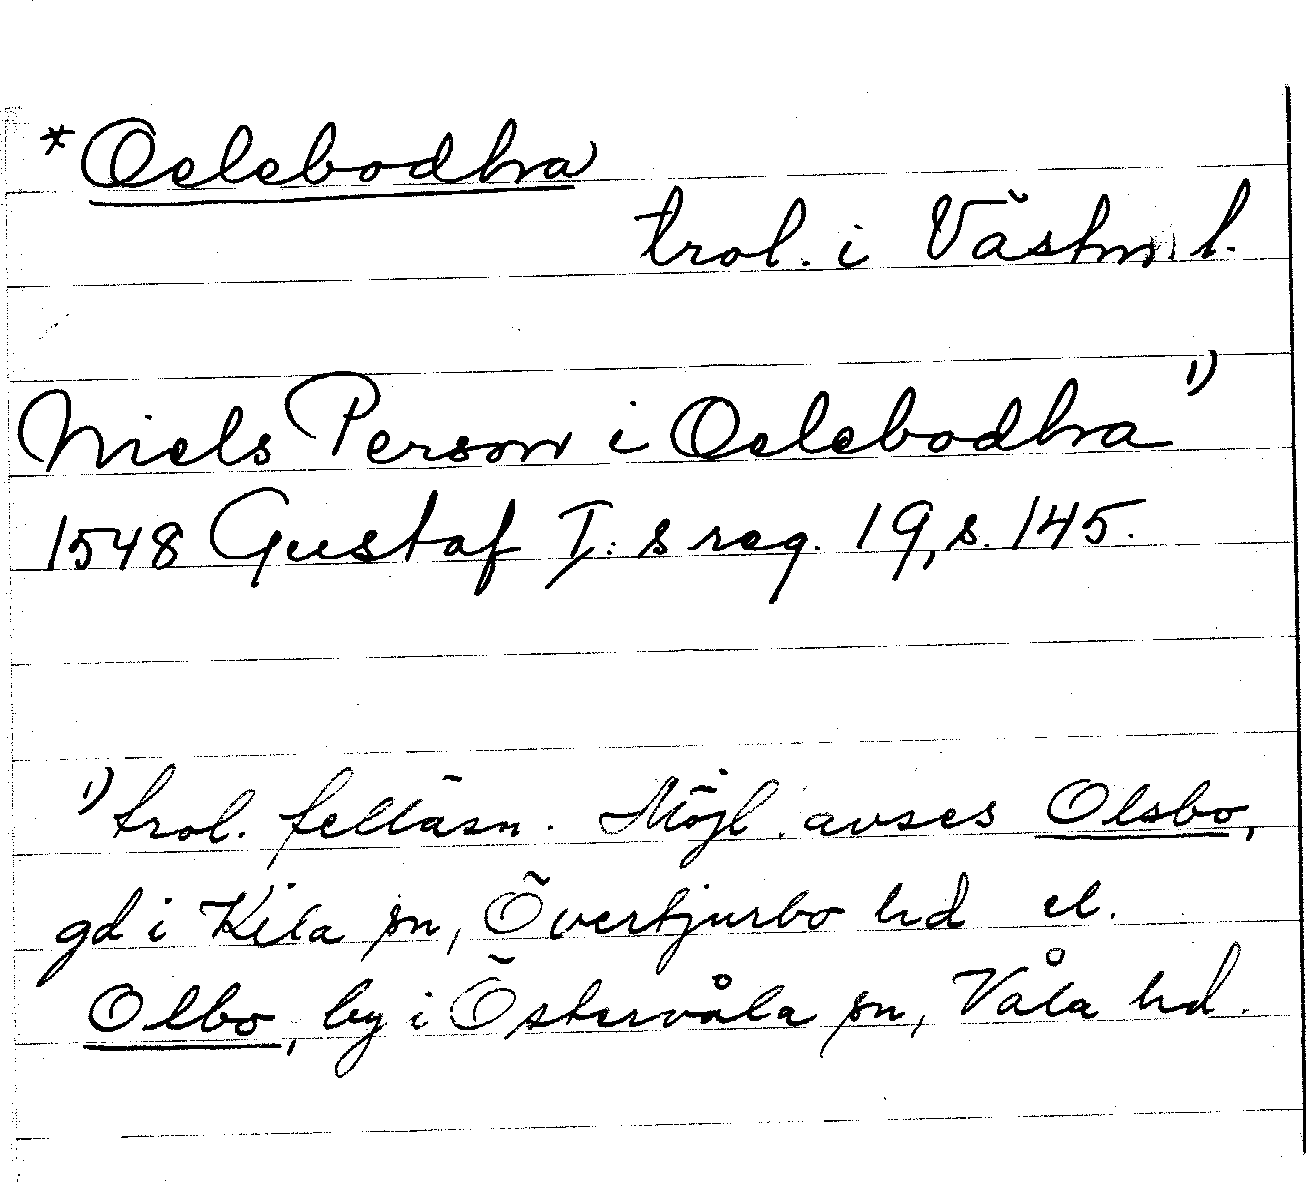 *Oelebodhra
trol. i Västm l.
Niels Person i Oelebodhra 1)
1548 Gustaf I:s reg. 19, s. 145.
1) trol. felläsn. Möjl. avses Olsbo,
gd i Kila sn, Övertjurbo hd el.
Olbo, by i Östervåla sn, Våla hd.